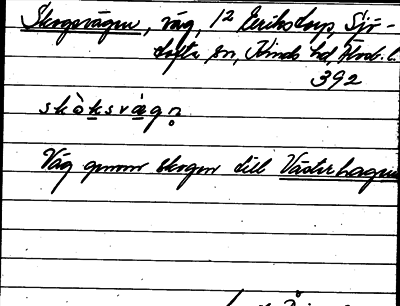 Skogsvägen, väg, 12 Erikstorp, Sjö-
tofta sn, Kinds hd, Älvsb. l.
392
skòksvägn
Väg genom skogen till Västerhagen